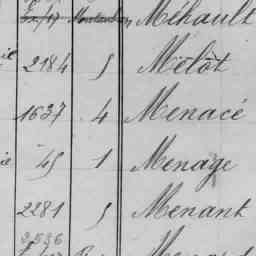 Méhault
2184 5 Mélôt
1637 4 Menacé
45 1 Menage
2281 5 Menant
2,536